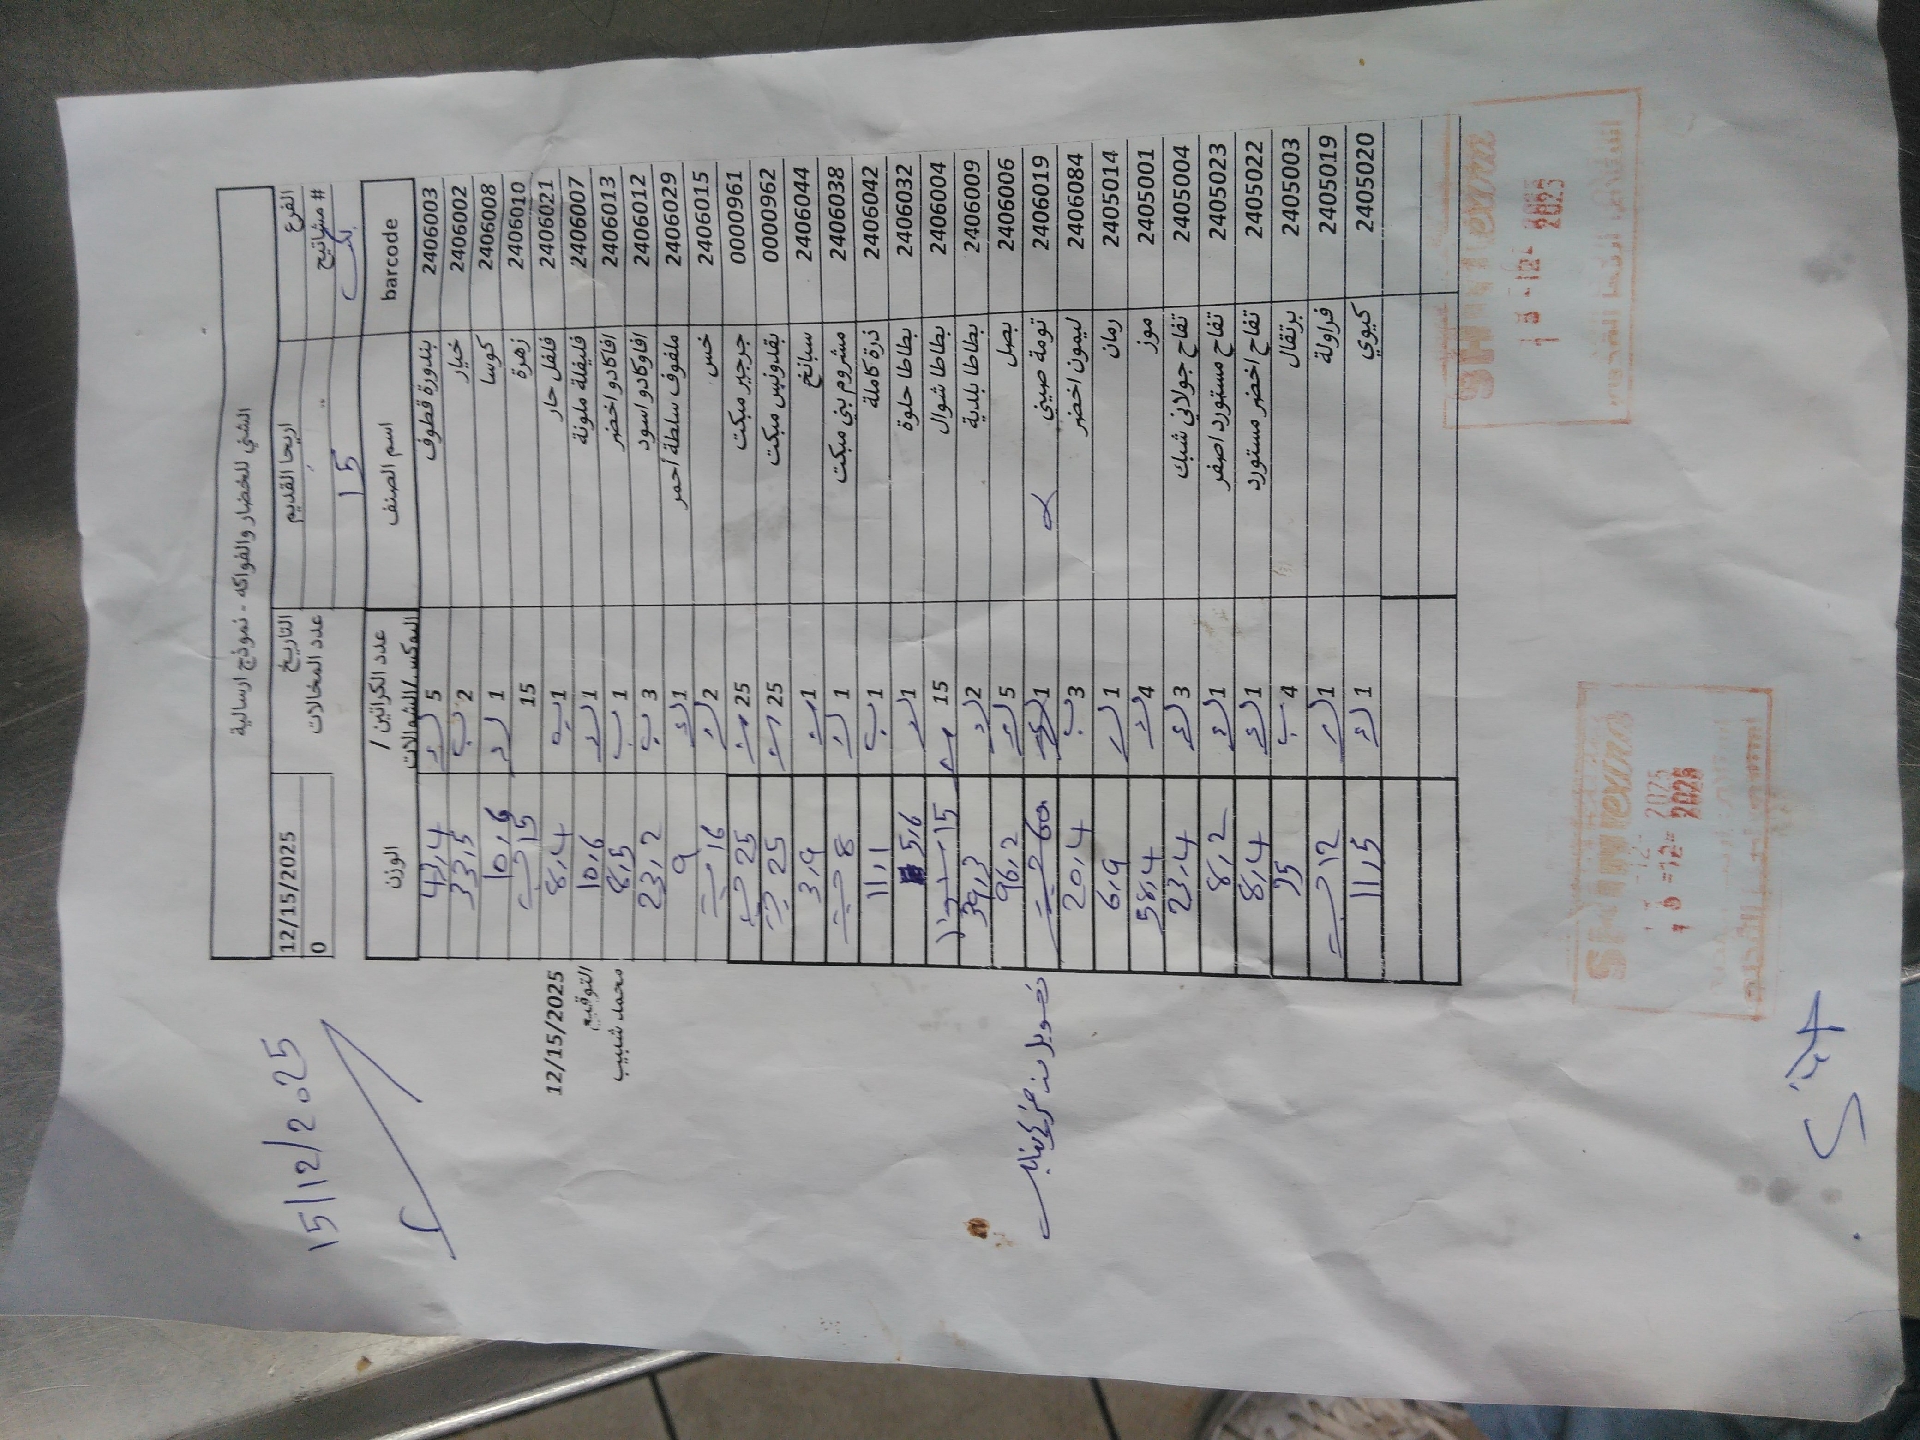 15/12/2025
الشني للخضار والفواكه - نموذج ارسالية
الفرع اريحا القديم التاريخ 12/15/2025
# مشاتيح عدد المخالات 0
15
barcode اسم الصنف عدد الكراتين / البوكس/الشوالات الوزن
2406003 بندورة قطوف 5 47,4
2406002 خيار 2 ب 33,5
2406008 كوسا 1 10,6
2406010 زهرة 15 15
2406021 فلفل حار 1 ب 8,4
2406007 فليفلة ملونة 1 10,6
2406013 افاكادو اخضر 1 ب 8,5
2406012 افاوكادو اسود 3 ب 23,2
2406029 ملفوف سلطة احمر 1 9
2406015 خس 2 16
0000961 جرجير مبكت 25 25
0000962 بقدونيس مبكت 25 25
2406044 سبانخ 1 3,9
2406038 مشروم بني مبكت 1 8
2406042 ذرة كاملة 1 ب 11,1
2406032 بطاطا حلوة 1 5,6
2406004 بطاطا شوال 15 15
2406009 بطاطا بلدية 2 39,3
2406006 بصل 5 96,2
2406019 تومة صيني 1 60
2406084 ليمون اخضر 3 ب 20,4
2405014 رمان 1 6,9
2405001 موز 4 58,4
2405004 تفاح جولاني شبك 3 23,4
2405023 تفاح مستورد اصفر 1 8,2
2405022 تفاح اخضر مستورد 1 8,4
2405003 برتقال 4 ب 75
2405019 فراولة 1 12
2405020 كيوي 1 11,5
12/15/2025
التوقيع
محمد شبيب